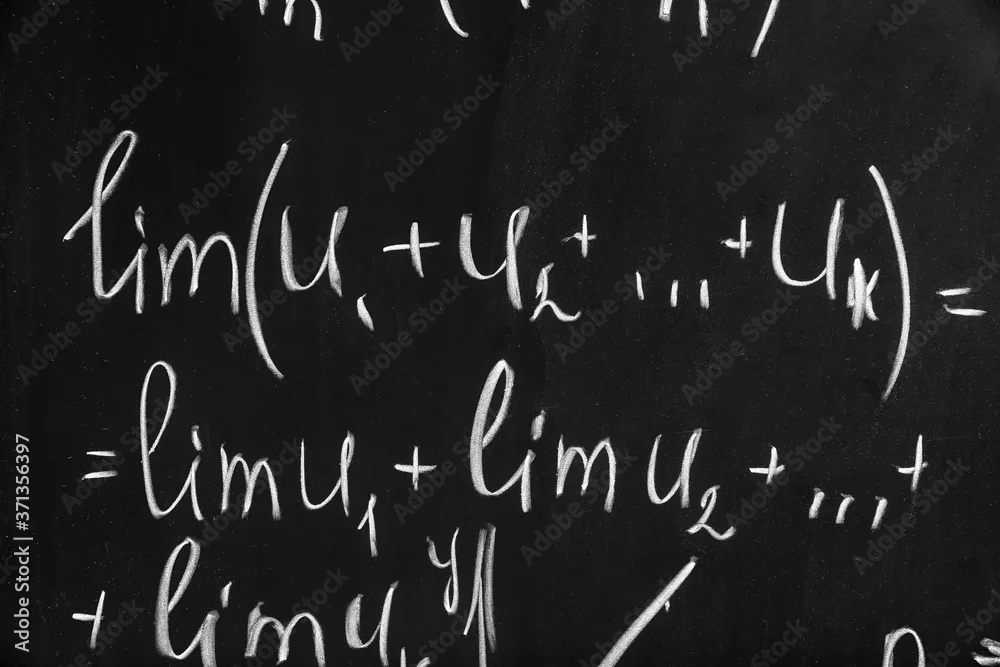 lim(u₁ + u₂ + ... + uₖ) =
= lim u₁ + lim u₂ + ... +
+ lim u
Adobe Stock | #371356397